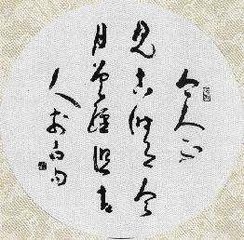 今人不
見古時月今
月曾經照古
人李白句